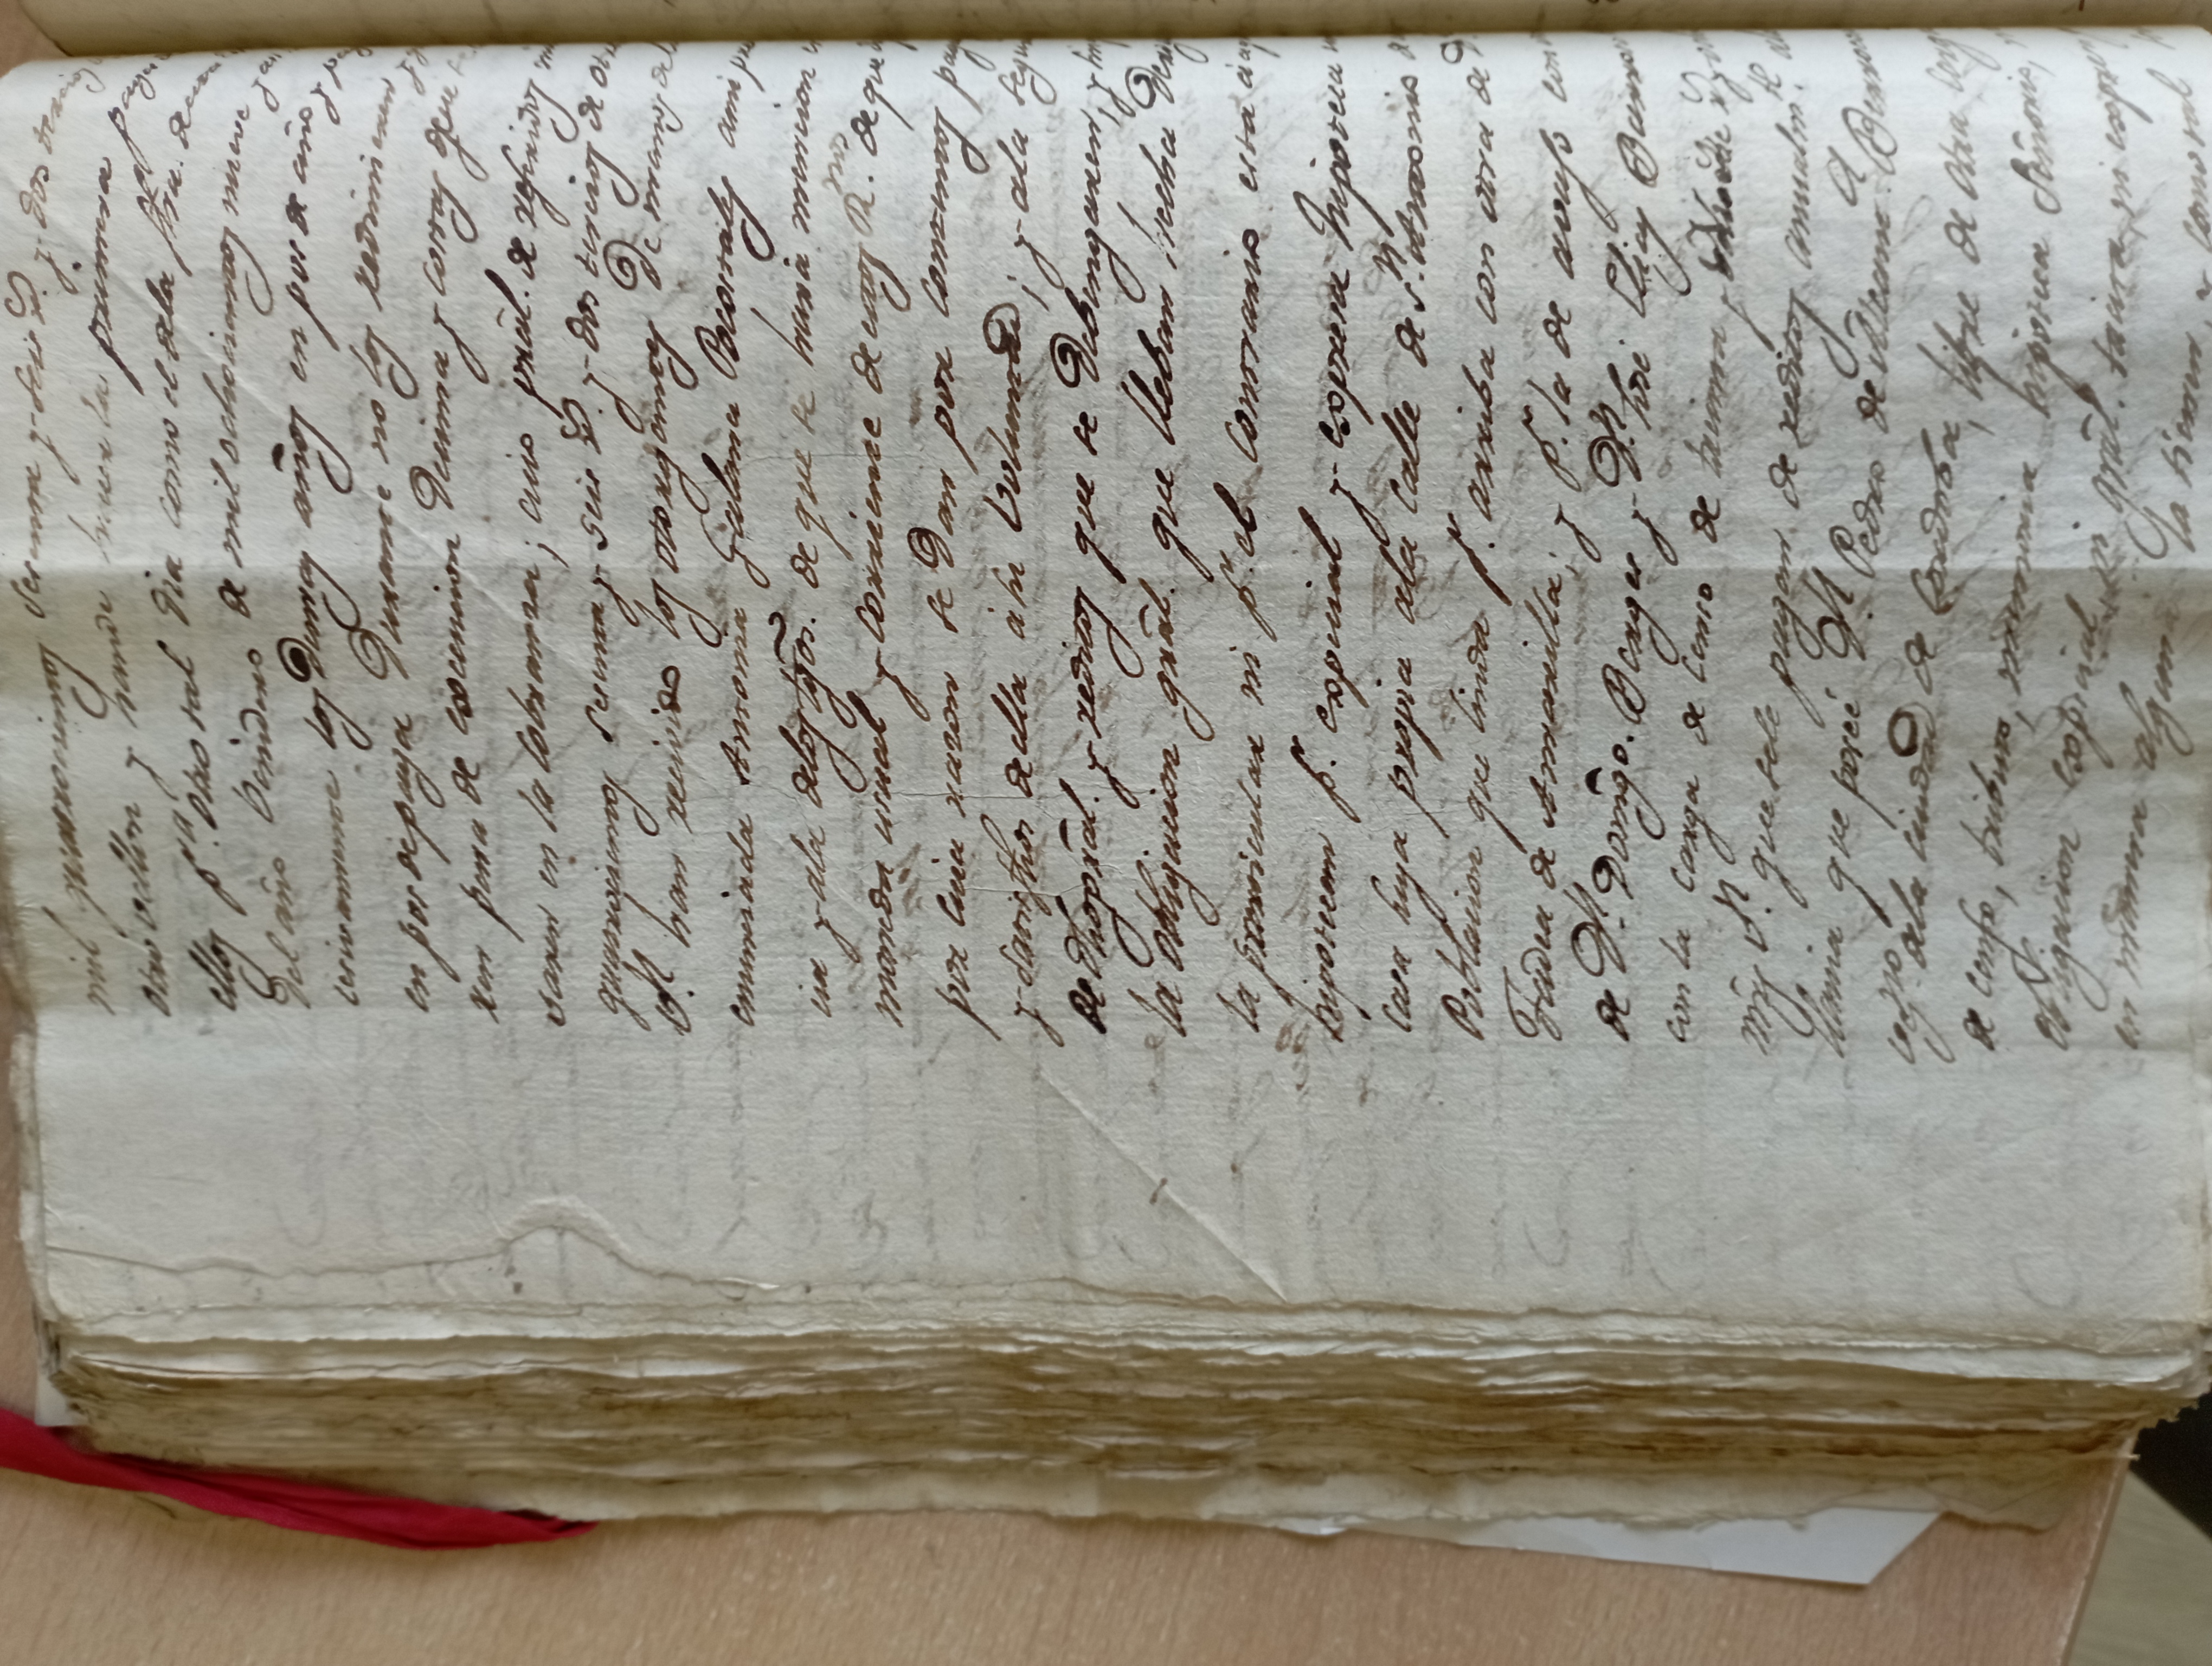 mil quatrocientos sesenta y seis r.^s y dos tercios
otro vellon y hande hacer la primera paga
ellos p.^ra otro tal dia como el dela fha. de
del año Venidero de mil ochocientos nueve y
cesivamente los Demas años en pos de año y
en pos de paga Durante no los redimieren y
ren pena de execucion Decima y costas que
saren en la Cobranza; cuio prãl. de referidos
quatrocientos sesenta y seis r.^s y dos tercios de
v.^n han recivido los otorgantes De manos de
enunciada Antonia Galana Pocostales a mi
cia y ala delos tgõs. de que se hara mencion
moneda usual y corriente de estos R.^nos de que
por cuia razon se Dan por contentos
y satisfhos de ella á su Voluntad; y ala
de dho prãl. y reditos que se Debengaren, y
la obligacion grãl. que lleban hecha
la particular ni p.^r el contrario esta á
hipotecan p.^r especial y expresa hipoteca
casa suya propia ala Calle de S.^n Antonio
Poblacion que linda p.^r arriba con otra de
Tadea de Amarilla; y p.^r la de avajo con
de D.^n Domĩgo. Berger y D.^n José Elias
con la Carga de Censo de treinta y
mrs v.^n que sele pagan de reditos anualm.^te
llania que poseé D.^n Pedro de Alcant.^a
vez.^no dela ciudad de Cordoba, libre de otra
de censo, tributo, memoria hipoteca Señorio,
obligacion especial, ni grãl. tacita, ni
en manera alguna la tienen, y como tal